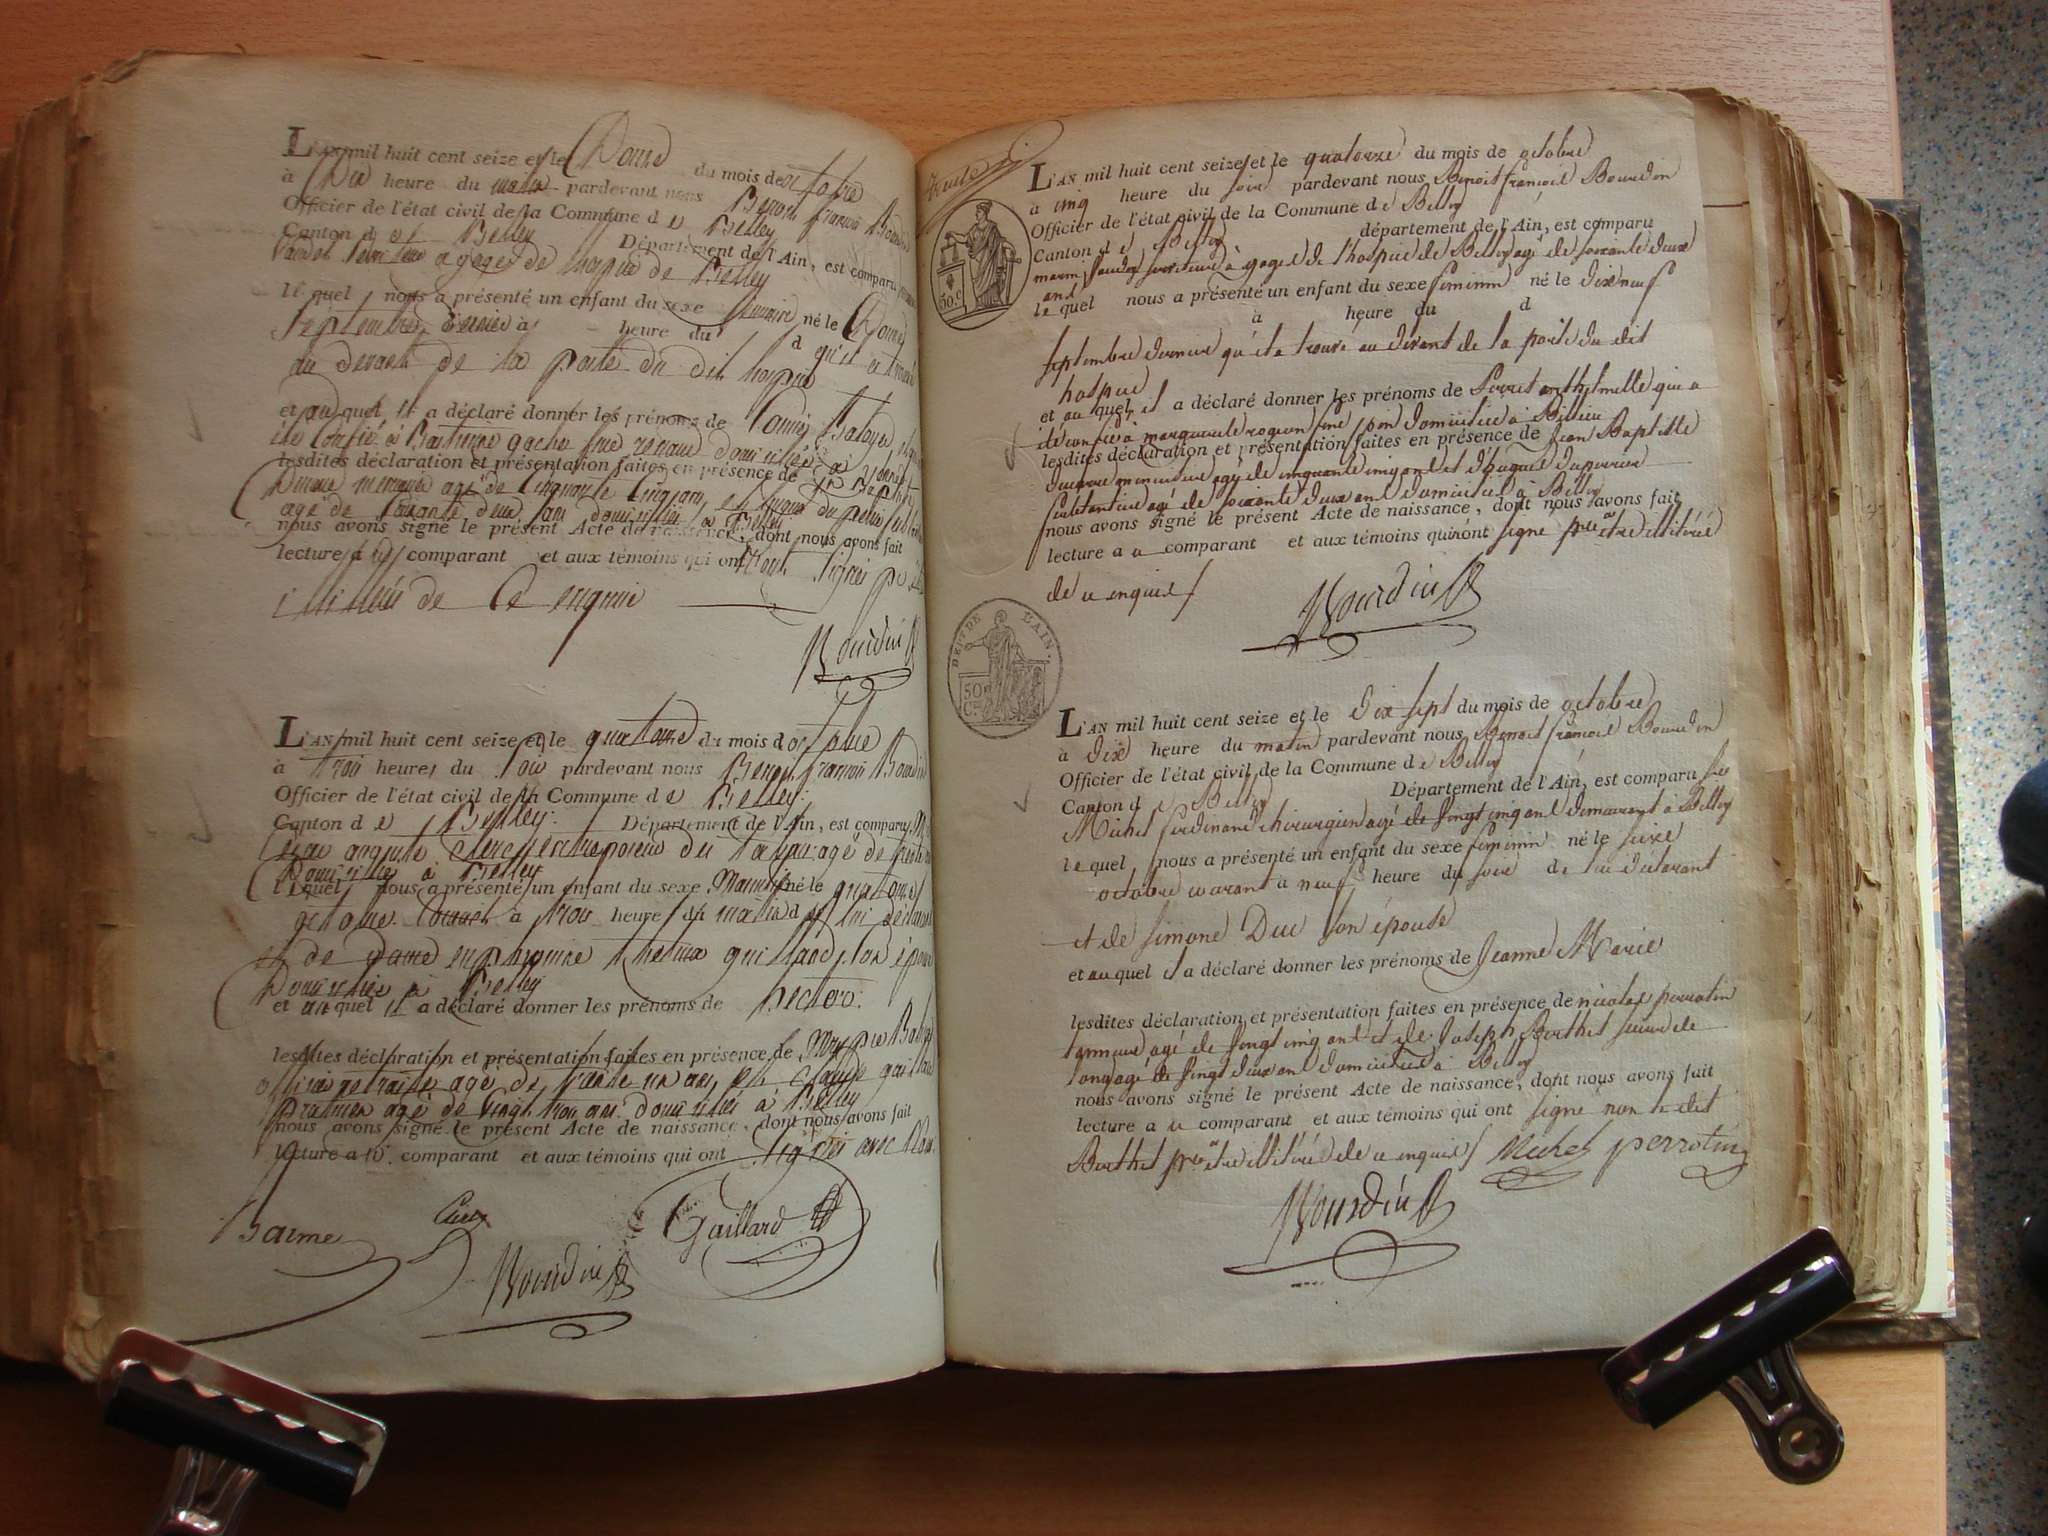 L'AN mil huit cent seize et le Douze du mois de octobre
à Dix heure du matin pardevant nous Benoit françois Bourdin
Officier de l'état civil de la Commune d e Belley
Canton d e Belley Département de l'Ain, est comparu
a gages de hospice de Belley
le quel nous a présenté un enfant du sexe né le Douze
Septembre dernier à heure du d qu'il a trouvé
au devant de la porte du dit hospice
et au quel il a déclaré donner les prénoms de
été confié à
lesdites déclaration et présentation faites en présence de
agé de Cinquante Cinq ans et
agé de Soixante deux ans domiciliés à Belley
nous avons signé le présent Acte de naissance, dont nous avons fait
lecture a u comparant et aux témoins qui ont
illitérés de Ce enquis
Bourdin
L'AN mil huit cent seize et le quatorze du mois d octobre
à trois heures du soir pardevant nous Benoit françois Bourdin
Officier de l'état civil de la Commune d e Belley
Canton d e Belley Département de l'Ain, est comparu
auguste Clerc entreposeur des tabacs agé de trente
Domicilié à Belley
le quel nous a présenté un enfant du sexe Masculin né le quatorze
octobre Courant à trois heures du matin d e lui déclarant
et de Dame guillard son épouse
Domiciliés à Belley
et au quel il a déclaré donner les prénoms de hector.
lesdites déclaration et présentation faites en présence de
officier en retraite agé de trente un ans, et Claude gaillard
praticien agé de vingt trois ans domiciliés à Belley
nous avons signé le présent Acte de naissance, dont nous avons fait
lecture a u comparant et aux témoins qui ont signés avec Nous
Barme Clerc Gaillard
Bourdin
50.c
L'AN mil huit cent seize et le quatorze du mois de octobre
à cinq heure du soir pardevant nous Benoit françois Bourdin
Officier de l'état civil de la Commune d e Belley
Canton d e Belley département de l'Ain, est comparu
serviteur à gages de l'hospice de Belley agé de soixante deux
ans
le quel nous a présenté un enfant du sexe feminin né le dix neuf
à heure du d
septembre dernier qu'il a trouvé au devant de la porte du dit
hospice
et au quel il a déclaré donner les prénoms de qui a
été confiée à marguerite domiciliée à
lesdites déclaration et présentation faites en présence de Jean Baptiste
agé de cinquante cinq ans et d'hugues duperrier
agé de soixante deux ans domiciliés à Belley
nous avons signé le présent Acte de naissance, dont nous avons fait
lecture a u comparant et aux témoins qui n'ont signé pour être illitérés
de ce enquis
Bourdin
DEPT. DE L'AIN.
50
C.
L'AN mil huit cent seize et le dix sept du mois de octobre
à dix heure du matin pardevant nous Benoit françois Bourdin
Officier de l'état civil de la Commune d e Belley
Canton d e Belley Département de l'Ain, est comparu
Michel ferdinand chirurgien agé de vingt cinq ans demeurant à Belley
le quel nous a présenté un enfant du sexe feminin né le seize
octobre courant à neuf heure du soir de lui déclarant
et de Simone Duc son épouse
et au quel il a déclaré donner les prénoms de Jeanne Marie
lesdites déclaration et présentation faites en présence de nicolas perrotin
tanneur agé de vingt cinq ans et de Joseph Berthet scieur de
long agé de vingt deux ans domiciliés à Belley
nous avons signé le présent Acte de naissance, dont nous avons fait
lecture a u comparant et aux témoins qui ont signé non le dit
Berthet pour être illitéré de ce enquis Michel perrotin
Bourdin